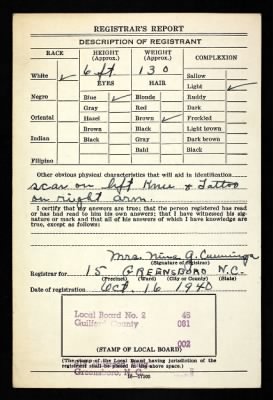 REGISTRAR'S REPORT
DESCRIPTION OF REGISTRANT
RACE HEIGHT (Approx.) WEIGHT (Approx.) COMPLEXION
6 ft. 130
White ✓ EYES HAIR Sallow
Light ✓
Negro Blue ✓ Blonde Ruddy
Gray Red Dark
Oriental Hazel Brown ✓ Freckled
Brown Black Light brown
Indian Black Gray Dark brown
Bald Black
Filipino
Other obvious physical characteristics that will aid in identification
scar on left Knee & Tattoo
on right arm.
I certify that my answers are true; that the person registered has read
or has had read to him his own answers; that I have witnessed his sig-
nature or mark and that all of his answers of which I have knowledge are
true, except as follows:
Mrs. Nina G. Cummings
(Signature of registrar)
Registrar for 15 GREENSBORO N.C.
(Precinct) (Ward) (City or County) (State)
Date of registration Oct 16 1940
Local Board No. 2 45
Guilford County 081
002
(STAMP OF LOCAL BOARD)
(The stamp of the Local Board having jurisdiction of the
registrant shall be placed in the above space.)
Greensboro, N. C.